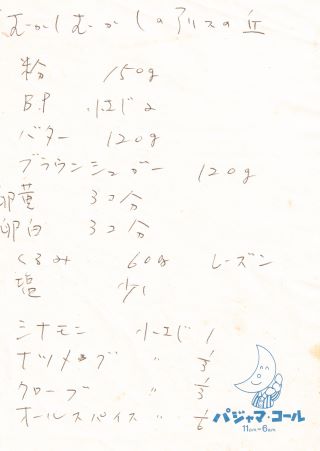 むかしむかしのアリスの丘
粉 150g
B.P 小エじ2
バター 120g
ブラウンシュガー 120g
卵黄 3コ分
卵白 3コ分
くるみ 60g レーズン
塩 少々
シナモン 小エじ 1
ナツメッグ 〃 1/3
クローブ 〃 1/3
オールスパイス 〃 1/6
パジャマ・コール
11pm-6am